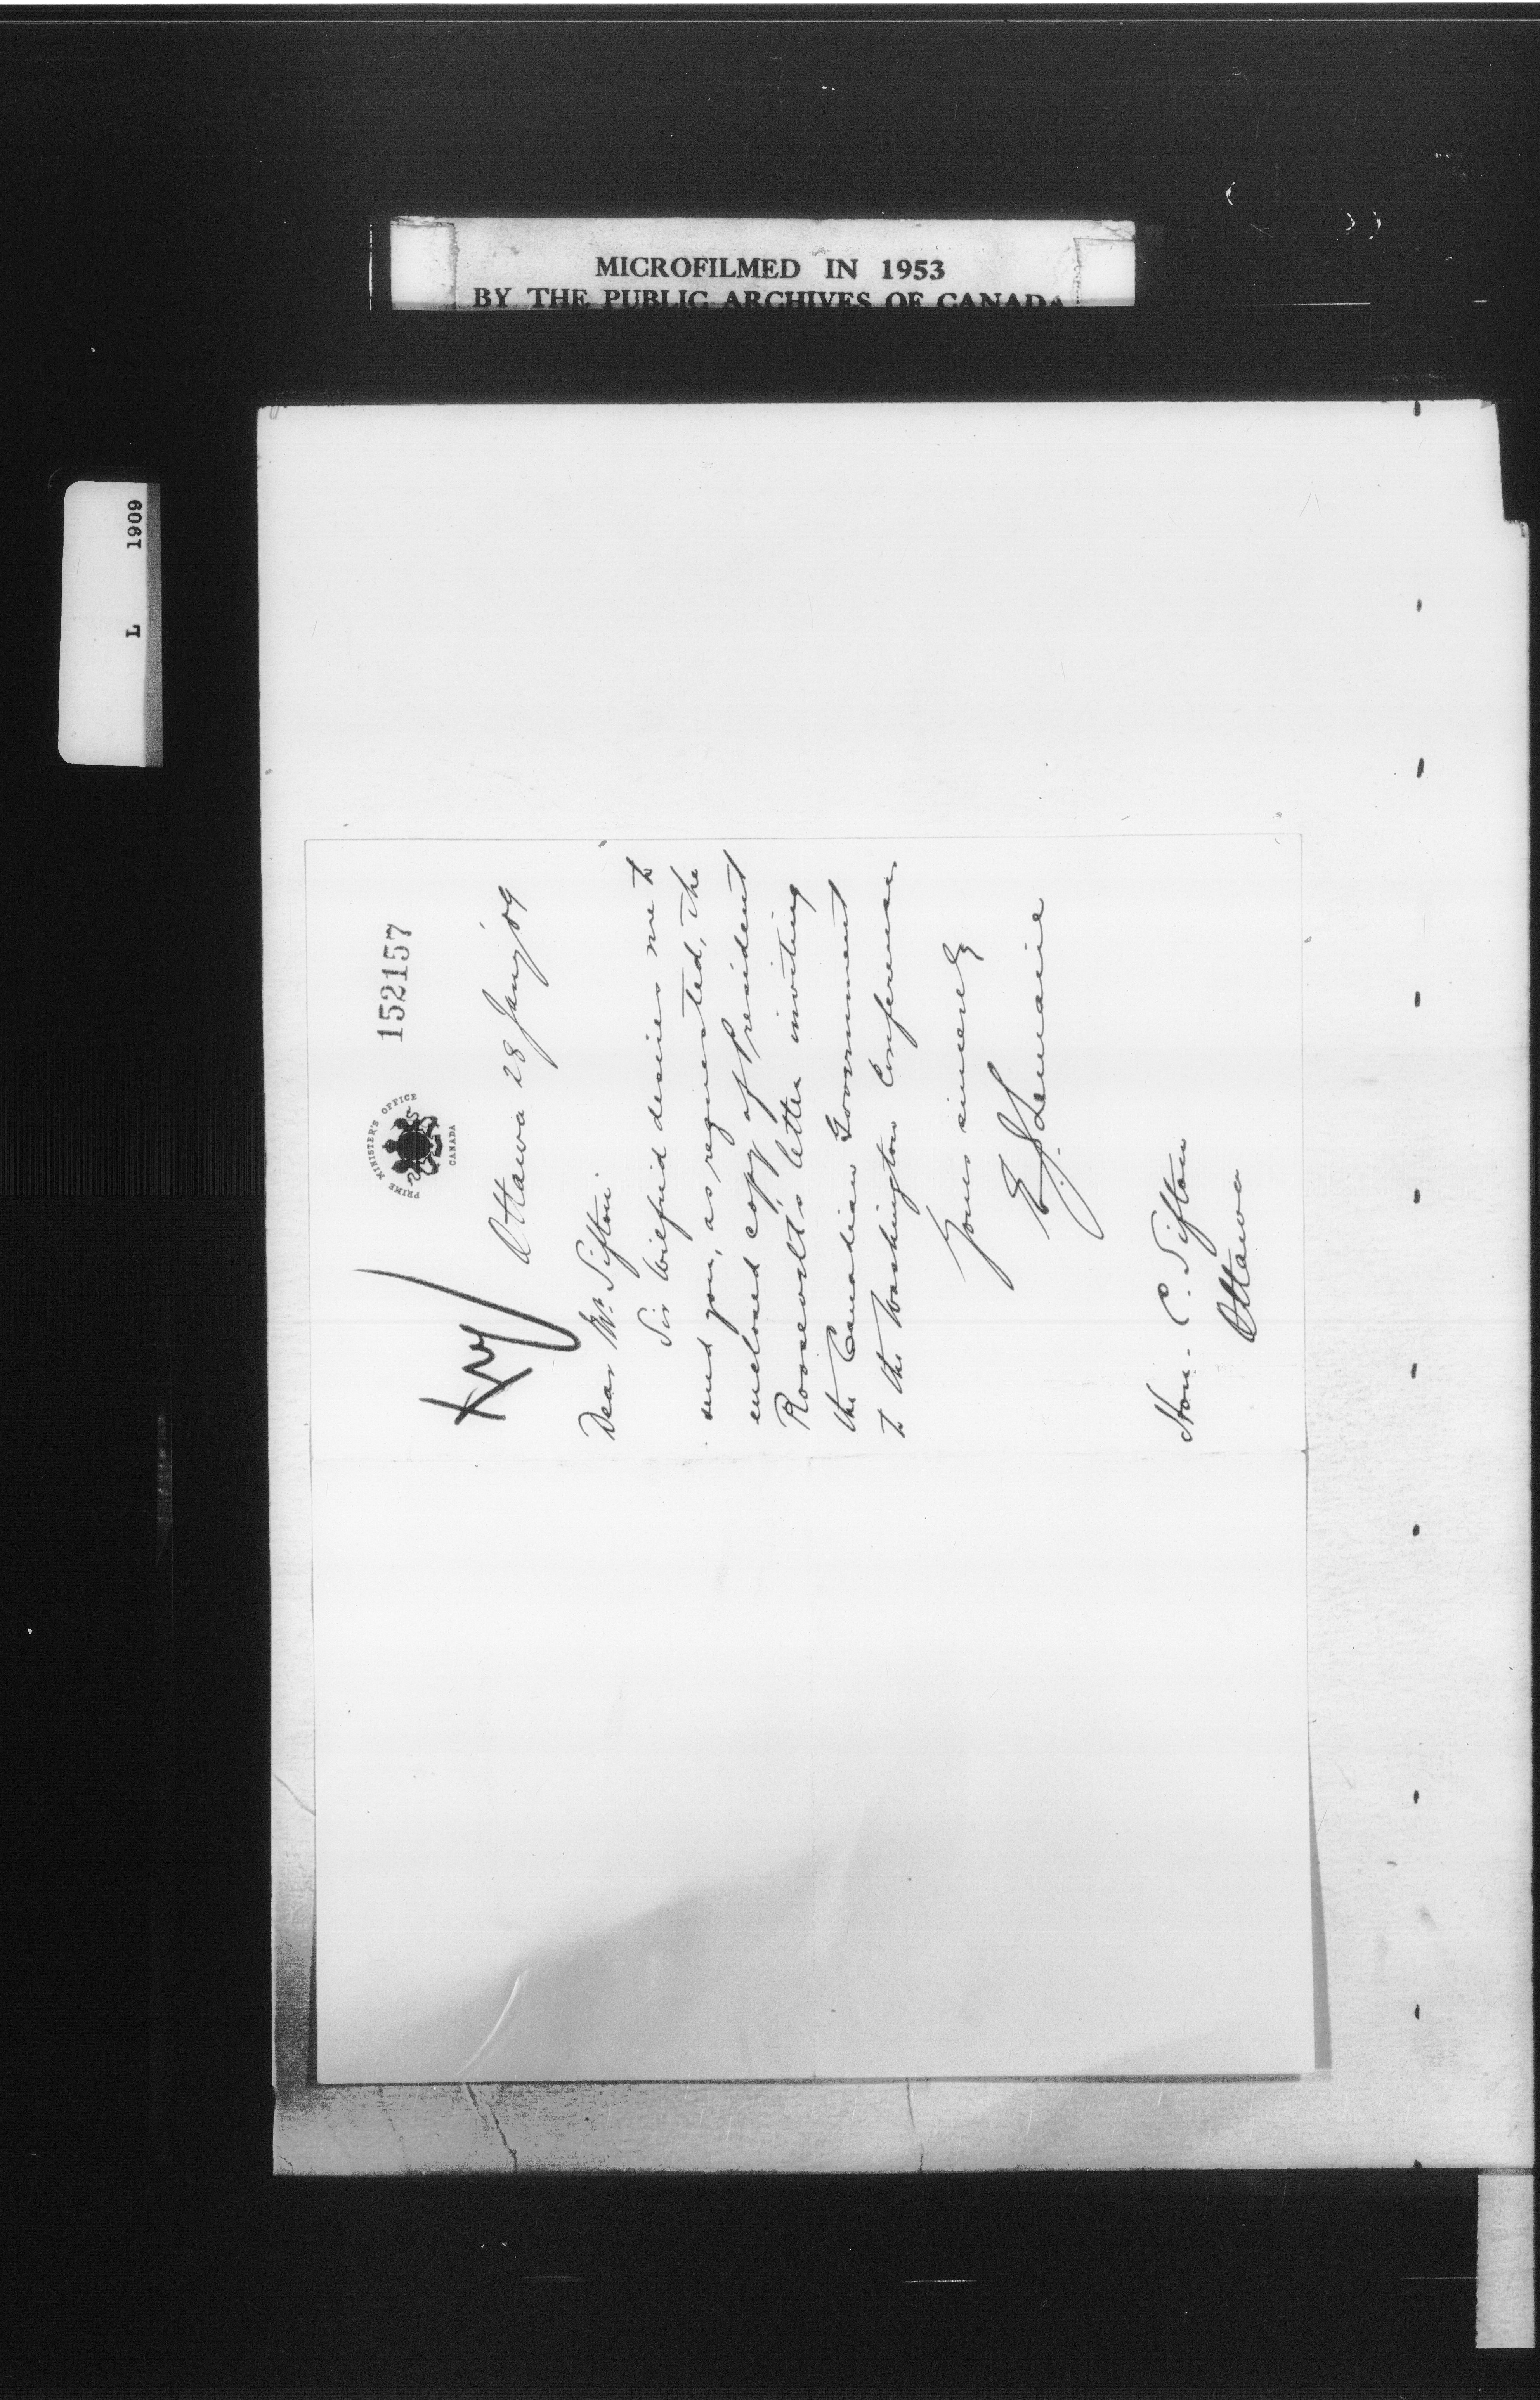 MICROFILMED IN 1953
BY THE PUBLIC ARCHIVES OF CANADA
L 1909
152157
PRIME MINISTER'S OFFICE
CANADA
Ottawa 28 Jany '09
Dear Mr Sifton:
Sir Wilfrid desires me to
send you, as requested, the
enclosed copy of President
Roosevelt's letter inviting
the Canadian Government
to the Washington Conference.
Yours sincerely
E.J. Lemaire
Hon. C. Sifton
Ottawa